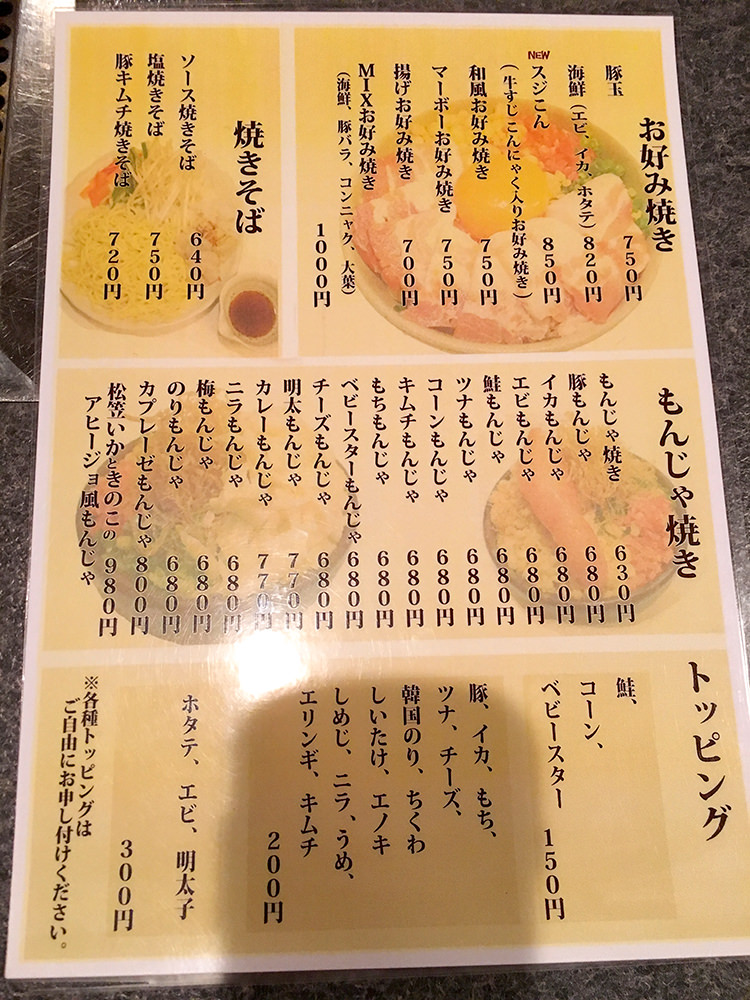 お好み焼き
豚玉 750円
海鮮(エビ、イカ、ホタテ) 820円
NEW
スジこん 850円
(牛すじこんにゃく入りお好み焼き)
和風お好み焼き 750円
マーボーお好み焼き 750円
揚げお好み焼き 700円
MIXお好み焼き 1000円
(海鮮、豚バラ、コンニャク、大葉)
焼きそば
ソース焼きそば 640円
塩焼きそば 750円
豚キムチ焼きそば 720円
もんじゃ焼き
もんじゃ焼き 630円
豚もんじゃ 680円
イカもんじゃ 680円
エビもんじゃ 680円
鮭もんじゃ 680円
ツナもんじゃ 680円
コーンもんじゃ 680円
キムチもんじゃ 680円
もちもんじゃ 680円
ベビースターもんじゃ 680円
チーズもんじゃ 680円
明太もんじゃ 770円
カレーもんじゃ 770円
ニラもんじゃ 680円
梅もんじゃ 680円
のりもんじゃ 680円
カプレーゼもんじゃ 800円
松笠いかときのこの 980円
アヒージョ風もんじゃ
トッピング
鮭、
コーン、
ベビースター 150円
豚、イカ、もち、
ツナ、チーズ、
韓国のり、ちくわ
しいたけ、エノキ
しめじ、ニラ、うめ、
エリンギ、キムチ
200円
ホタテ、エビ、明太子
300円
※各種トッピングは
ご自由にお申し付けください。